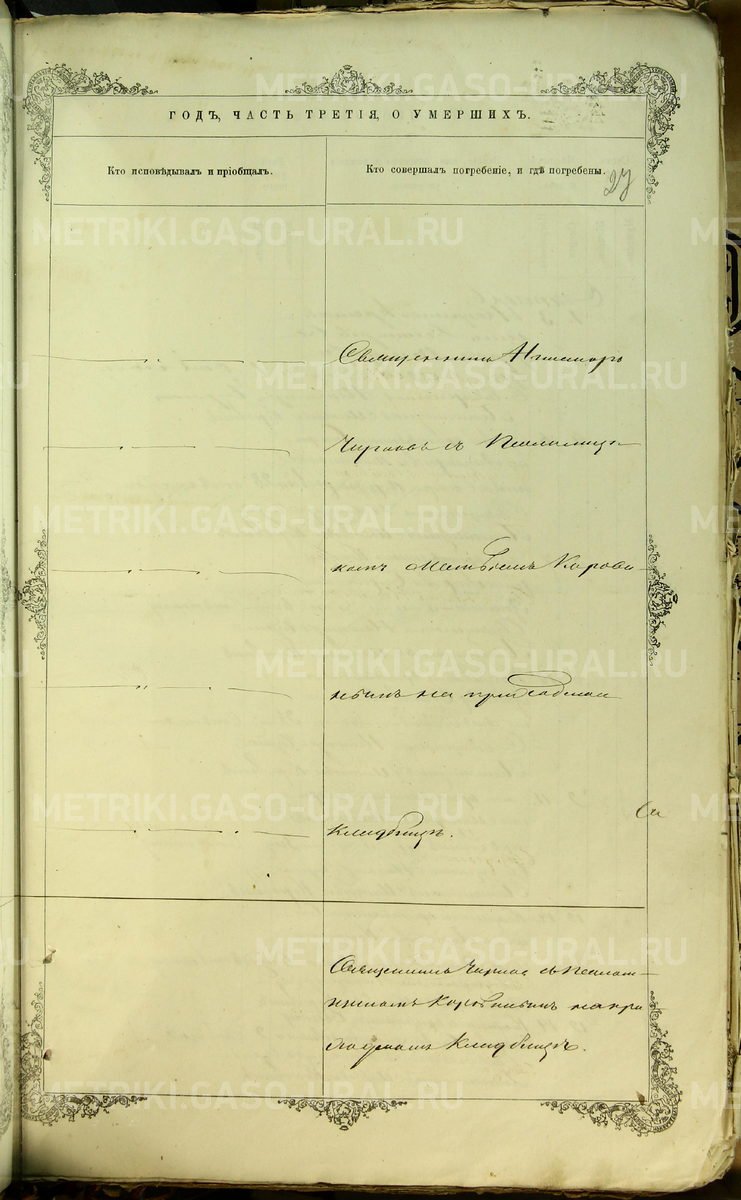 METRIKI.GASO-URAL.RU
ГОДЪ, ЧАСТЬ ТРЕТІЯ, О УМЕРШИХЪ.
Кто исповѣдывалъ и пріобщалъ.
Кто совершалъ погребеніе, и гдѣ погребены.
27
Священникъ
Чирковъ съ Псаломщи-
комъ Матвѣемъ Корови-
нымъ на приходскомъ
кладбищѣ.
Священникъ Чирковъ съ Псалом-
щикомъ Коровинымъ на при
ходскомъ кладбищѣ.